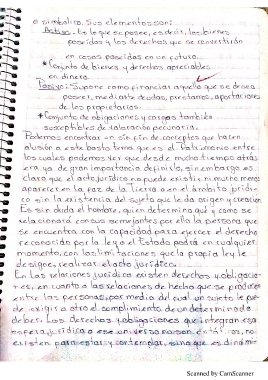 o simbolico. Sus elementos son:
Activo: Es lo que se posee, es decir, los bienes
poseidos y los derechos que se convertirán
en cosas poseidas en un futuro.
*Conjunto de bienes y derechos apreciables
en dinero.
Pasivo: Supone como financiar aquello que se desea
poseer, mediante deudas, prestamos, aportaciones
de los propietarios.
*Conjunto de obligaciones y cargas también
susceptibles de valoración pecuniaria.
Podemos encontrar un sin fin de conceptos que hacen
alusión a este basto tema que es el Patrimonio entre
los cuales podemos ver que desde mucho tiempo atrás
era ya de gran importancia definirlo, sin embargo es
claro que el acto jurídico no puede existir, ni mucho menos
aparecer en la faz de la Tierra o en el ámbito jurídi-
co sin la existencia del sujeto que le da origen y creación
Es sin duda el hombre, quien determina qué y como se
relacionará con sus semejantes por ello la persona que
se encuentra con la capacidad para ejercer el derecho
reconocido por la ley o el Estado podrá en cualquier
momento, con las limitaciones que la propia ley le
designe, realizar el acto jurídico.
En las relaciones jurídicas existen derechos y obligacio-
nes, en cuanto a las relaciones de hecho que se producen
entre las personas, por medio del cual un sujeto le pue-
de exigir a otro el cumplimiento de un determinado
deber. Los derechos y obligaciones que integran esa
esfera jurídica o ese universo no son estáticos, no
existen para estar y contemplar, sino que es dinámi-
Scanned by CamScanner